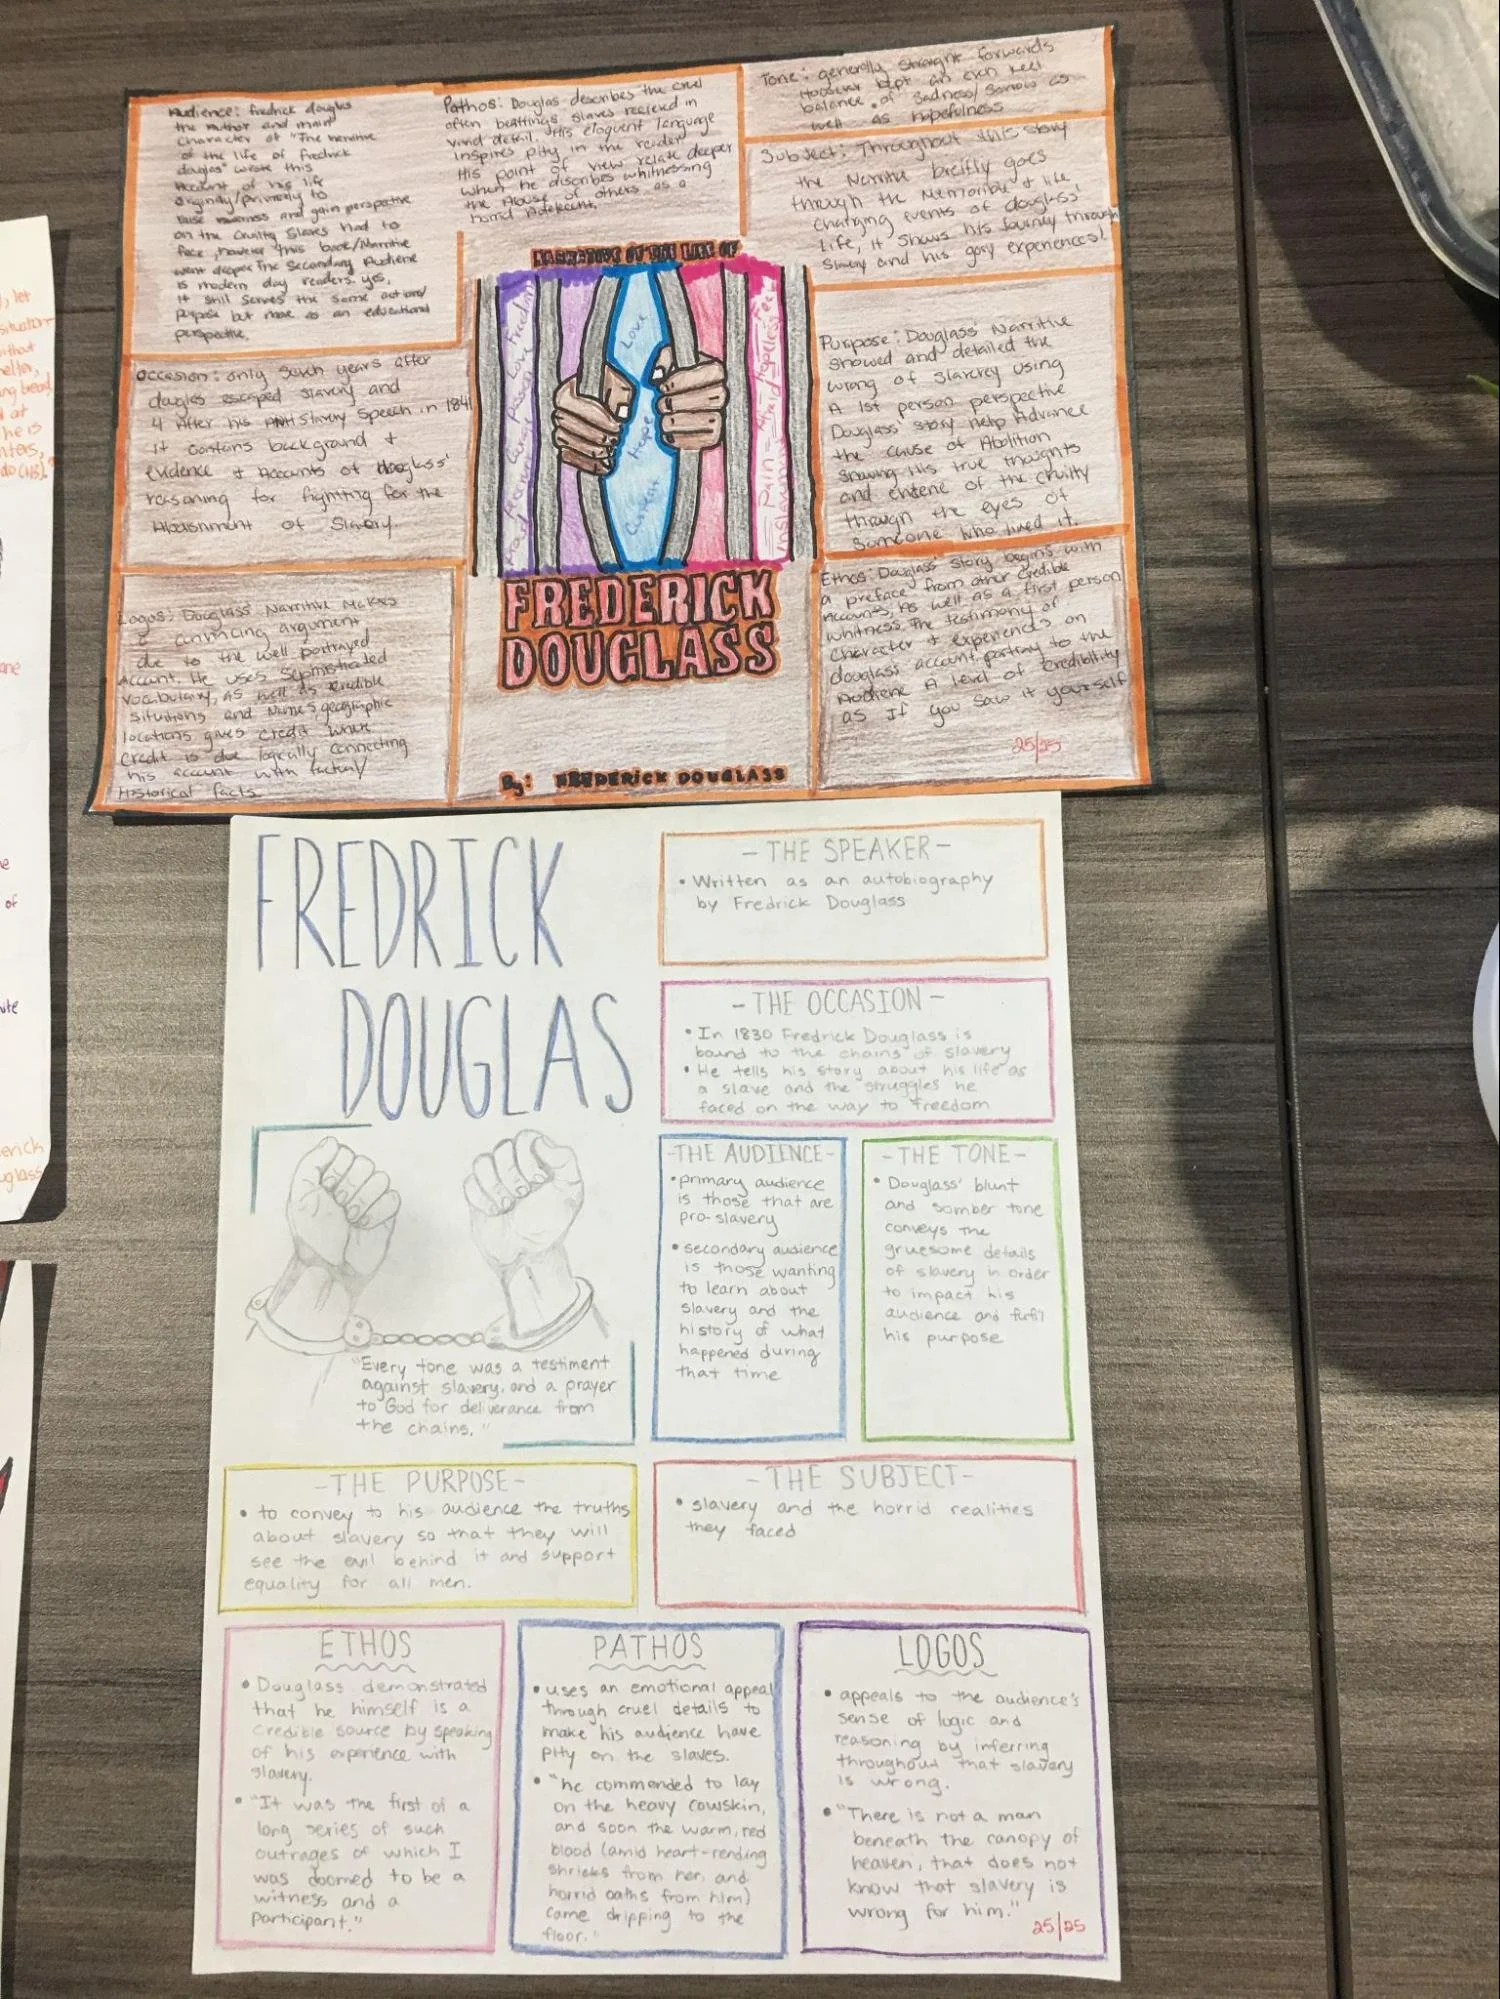 Audience: fredrick douglas
the author and main
Character of "The narritive
of the life of fredrick
douglas" wrote this
account of his life
originaly/primarily to
raise awarness and gain perspective
on the Cruilty Slaves had to
face, however this book/Narritive
went deeper The Secondary Audiene
is modern day readers. yes,
it still serves the same action/
purpose but more as an educational
perspective.
Pathos: Douglas describes the cruel
often beattings slaves recieved in
vivid detail. His eloquent language
inspires pity in the reader
His point of view relate deeper
when he discribes whitnessing
the Abuse of others as a
horrid Adolecent.
Tone: generally straight forwards
However kept an even keel
balance of Sadness/Sorrow as
well as hopefulness
Subject: Throughout this story
the Narritive breifly goes
through the Memorible & life
Changing events of douglass'
Life, it shows his Journey through
Slavery and his gory experiences!
Occasion: only seven years after
douglas escaped slavery and
4 After his Anti Slavery Speech in 1841
it contains background &
evidence & Accounts of douglass'
reasoning for fighting for the
Abolishment of Slavery.
NARRATIVE OF THE LIFE OF
Freedom
Love
Passion
Courage
Love
Hope
Content
Hopeless
Afraid
Pain
Purpose: Douglass' Narritive
showed and detailed the
wrong of Slavery using
A 1st person perspective
Douglass' story help Advance
the cause of Abolition
Showing His true thoughts
and extene of the cruilty
through the eyes of
Someone who lived it.
Logos: Douglass' Narritive Makes
a convincing argument,
due to the well portrayed
Account. He uses Sophisticated
Vocabulary, as well as credible
situitions and Names, geographic
locations gives credit where
credit is due logically connecting
his account with factual/
Historical facts
FREDERICK
DOUGLASS
By: FREDERICK DOUGLASS
Ethos: Douglass' story begins with
a preface from other Credible
Accounts, As well as a first person
whitness. The testimony of
Character & experiences on
douglass account, portray to the
Audiene A level of credibility
as If you saw it yourself
25/25
FREDRICK
DOUGLAS
- THE SPEAKER -
• Written as an autobiography
by Fredrick Douglass
- THE OCCASION -
• In 1830 Fredrick Douglass is
bound to the chains of slavery
• He tells his story about his life as
a slave and the struggles he
faced on the way to freedom
-THE AUDIENCE-
• primary audience
is those that are
pro-slavery
• secondary audience
is those wanting
to learn about
slavery and the
history of what
happened during
that time
- THE TONE -
• Douglass' blunt
and somber tone
conveys the
gruesome details
of slavery in order
to impact his
audience and fulfil
his purpose
"Every tone was a testiment
against slavery, and a prayer
to God for deliverance from
the chains."
-THE PURPOSE-
• to convey to his audience the truths
about slavery so that they will
see the evil behind it and support
equality for all men.
- THE SUBJECT-
• slavery and the horrid realities
they faced
ETHOS
• Douglass demonstrated
that he himself is a
credible source by speaking
of his experience with
slavery.
• "It was the first of a
long series of such
outrages of which I
was doomed to be a
witness and a
participant."
PATHOS
• uses an emotional appeal
through cruel details to
make his audience have
pity on the slaves.
• "he commended to lay
on the heavy cowskin,
and soon the warm, red
blood (amid heart-rending
shrieks from her, and
horrid oaths from him)
came dripping to the
floor."
LOGOS
• appeals to the audience's
sense of logic and
reasoning by inferring
throughout that slavery
is wrong.
• "There is not a man
beneath the canopy of
heaven, that does not
know that slavery is
wrong for him."
25/25